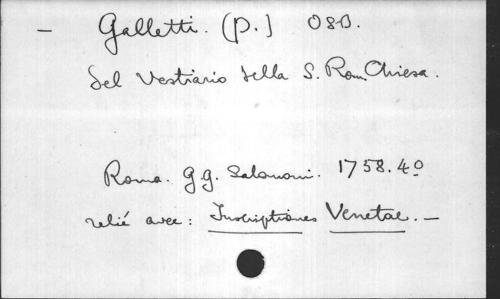 – Galletti. (P.) OSB.
del Vestiario della S. Rom. Chiesa.
Roma. G.G. Salomoni. 1758. 4º
relié avec: Inscriptiones Venetae. –